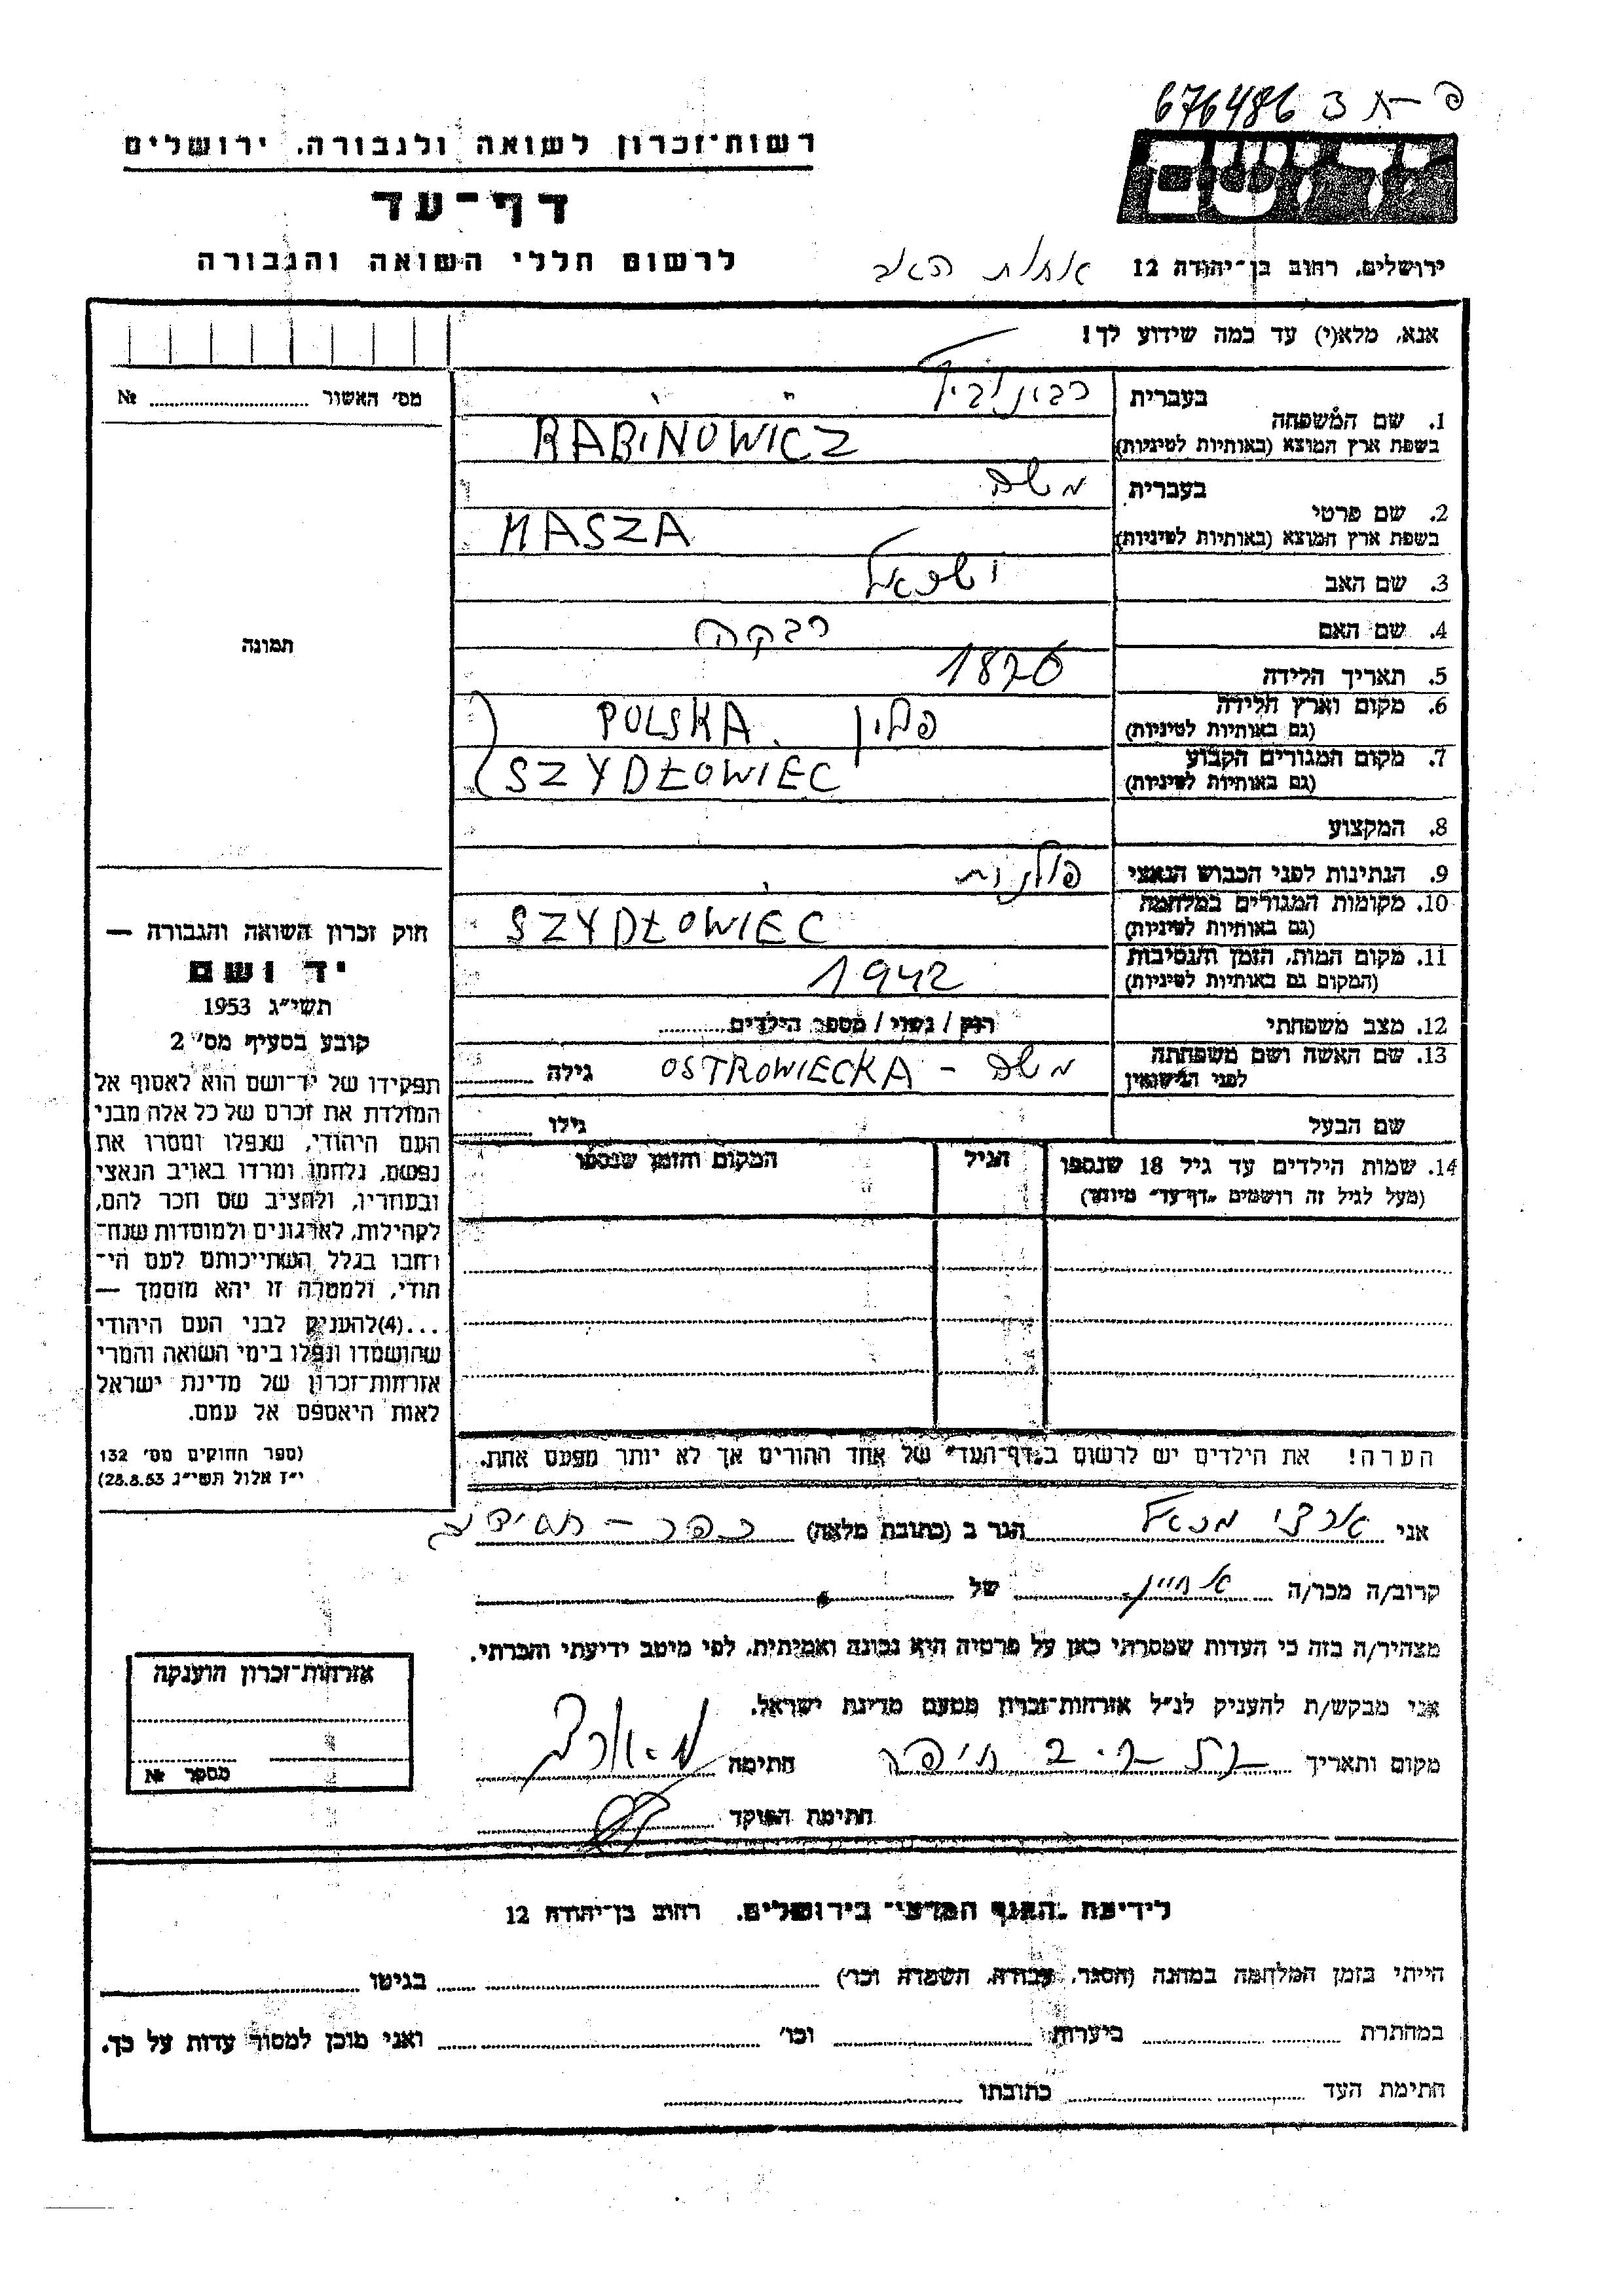 676486 פ-ת 3
רשות־זכרון לשואה ולגבורה, ירושלים
יד ושם
דף־עד
לרשום חללי השואה והגבורה
ירושלים, רחוב בן־יהודה 12
אחות האב
אנא, מלא(י) עד כמה שידוע לך!
מס׳ האשור № 
1. שם המשפחה
בעברית רבינוביץ
בשפת ארץ המוצא (באותיות לטיניות) RABINOWICZ
2. שם פרטי
בעברית משה
בשפת ארץ המוצא (באותיות לטיניות) MASZA
3. שם האב ישראל
4. שם האם רבקה
תמונה
5. תאריך הלידה 1876
6. מקום וארץ הלידה (גם באותיות לטיניות) פולין POLSKA
7. מקום המגורים הקבוע (גם באותיות לטיניות) SZYDŁOWIEC
8. המקצוע
9. הנתינות לפני הכבוש הנאצי פולנית
10. מקומות המגורים במלחמה (גם באותיות לטיניות) SZYDŁOWIEC
11. מקום המות, הזמן והנסיבות (המקום גם באותיות לטיניות) 1942
12. מצב משפחתי רווק / נשוי / מספר הילדים
13. שם האשה ושם משפחתה לפני הנישואין משה - OSTROWIECKA גילה
שם הבעל גילו
14. שמות הילדים עד גיל 18 שנספו
(מעל לגיל זה רושמים „דף־עד״ מיוחד)
הגיל
המקום והזמן שנספו
חוק זכרון השואה והגבורה —
יד ושם
תשי״ג 1953
קובע בסעיף מס׳ 2
תפקידו של יד־ושם הוא לאסוף אל
המולדת את זכרם של כל אלה מבני
העם היהודי, שנפלו ומסרו את
נפשם, נלחמו ומרדו באויב הנאצי
ובעוזריו, ולהציב שם וזכר להם,
לקהילות, לארגונים ולמוסדות שנח־
רחבו בגלל השתייכותם לעם הי־
הודי, ולמטרה זו יהא מוסמך —
...(4)להעניק לבני העם היהודי
שהושמדו ונפלו בימי השואה והמרי
אזרחות־זכרון של מדינת ישראל
לאות היאספם אל עמם.
(ספר החוקים מס׳ 132
י״ז אלול תשי״ג 28.8.53)
הערה! את הילדים יש לרשום ב„דף־העד״ של אחד ההורים אך לא יותר מפעם אחת.
אני ארצי הגר ב (כתובת מלאה) כפר - חסידים
קרוב/ה מכר/ה אחיין של
מצהיר/ה בזה כי העדות שמסרתי כאן על פרטיה היא נכונה ואמיתית, לפי מיטב ידיעתי והכרתי.
אני מבקש/ת להעניק לנ״ל אזרחות־זכרון מטעם מדינת ישראל.
מקום ותאריך חיפה חתימה
חתימת הפוקד
אזרחות־זכרון הוענקה
מספר №
לידיעת „הענף המדעי״ בירושלים, רחוב בן־יהודה 12
הייתי בזמן המלחמה במחנה (הסגר, עבודה, השמדה וכו׳) בגיטו
במחתרת ביערות וכו׳ ואני מוכן למסור עדות על כך.
חתימת העד כתובתו